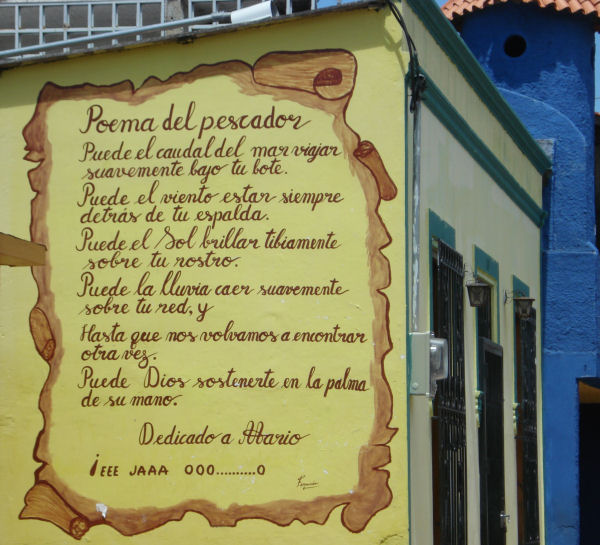 Poema del pescador
Puede el caudal del mar viajar
suavemente bajo tu bote.
Puede el viento estar siempre
detrás de tu espalda.
Puede el Sol brillar tibiamente
sobre tu rostro.
Puede la lluvia caer suavemente
sobre tu red, y
Hasta que nos volvamos a encontrar
otra vez.
Puede Dios sostenerte en la palma
de su mano.
Dedicado a Mario
¡EEE JAAA OOO..........O